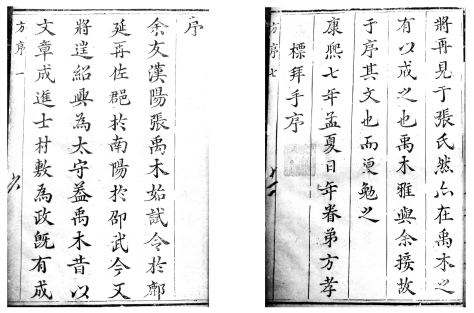 序
余友漢陽張禹木始試令於鄜
延再佐郡於南陽於邵武今又
將遷紹興為太守葢禹木昔以
文章成進士村敷為政旣有成
方序一
將再見于張氏然亦在禹木之
有以成之也禹木雅與余接故
于序其文也而更勉之
康熙七年孟夏日年眷弟方孝
標拜手序
方序七